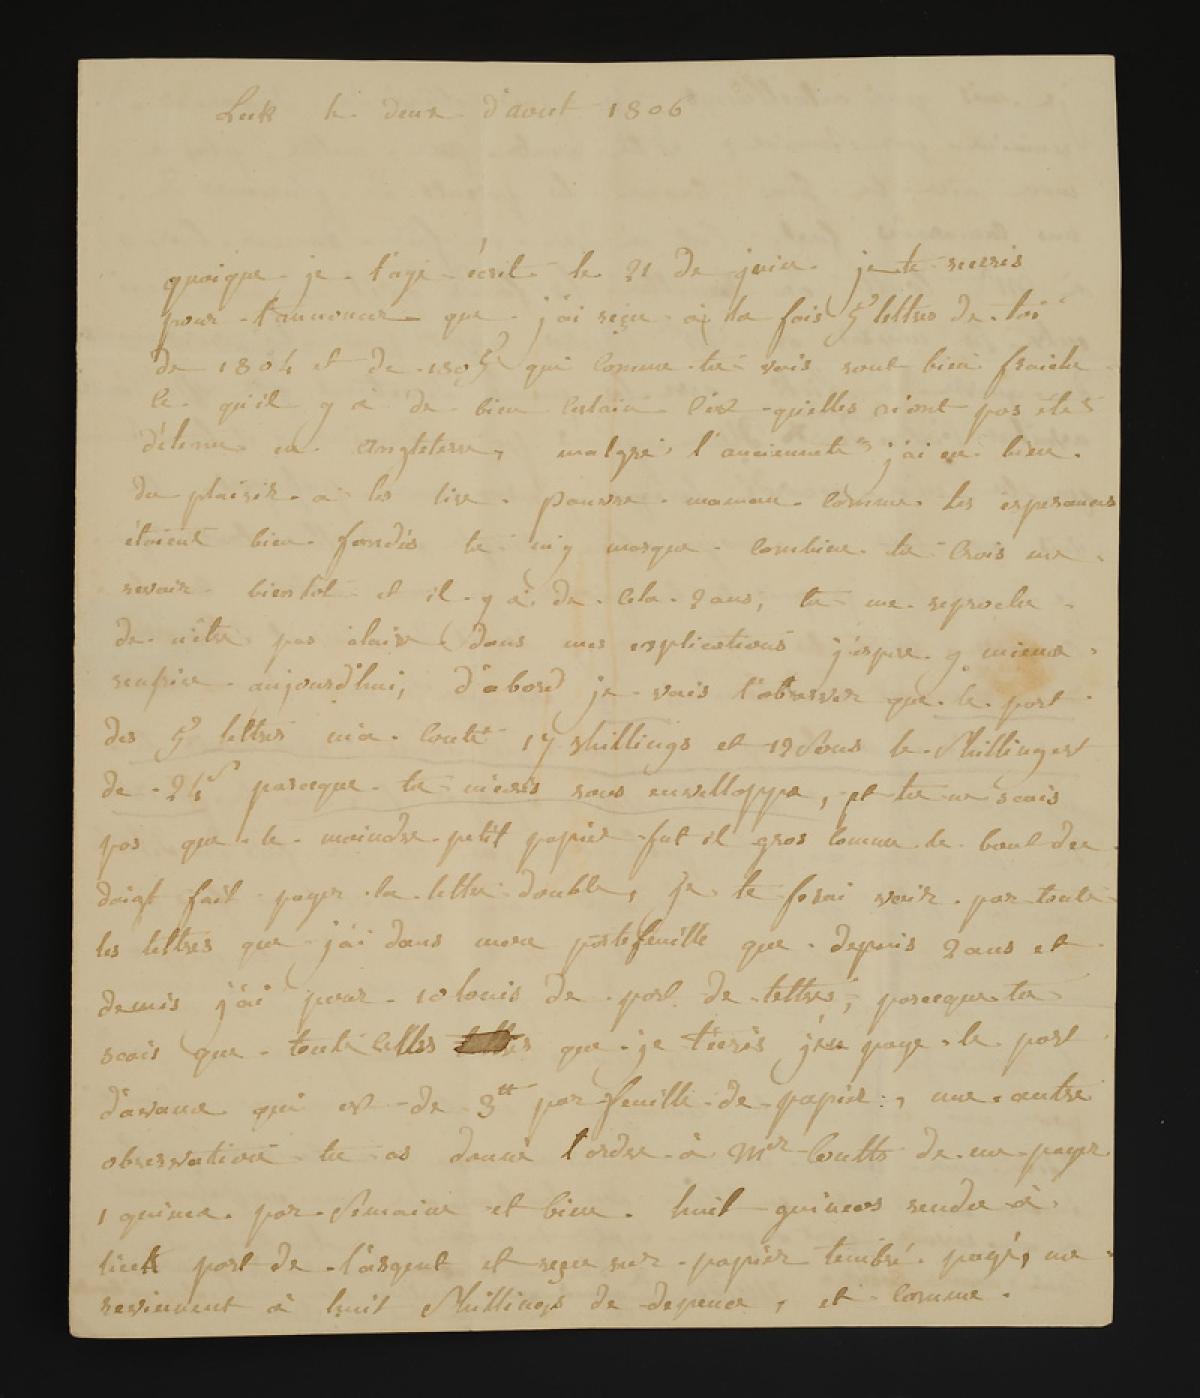 Leek le deux d'aout 1806
quoique je t'aye écrit le 21 de juin je te recris
pour t'annoncer que j'ai reçu à la fois 5 lettres de toi
de 1804 et de 1805 qui comme tu vois sont bien fraiche
ce qu'il y a de bien certain c'est quelles n'ont pas étés
détenu en Angleterre, malgré l'ancienneté j'ai eu bien
du plaisir à les lire pauvre maman comme tes esperances
étoient bien fondés tu m'y marque combien tu crois me
revoir bientot et il y a de cela 2 ans, tu me reproche
de nêtre pas clair dans mes explications j'espere y mieux
reusire aujourd'hui, d'abord je vais t'observer que le port
des 5 lettres m'a couté 17 shillings et 12 sous le shilling est
de 24 s parceque tu m'écris sous envelloppe, et tu ne scais
pas que le moindre petit papier fut il gros comme le bout du
doigt fait payer la lettre double, je te ferai voir par toute
les lettres que j'ai dans mon portefeuille que depuis 2 ans et
demis j'ai pour 10 louis de port de lettres, parceque tu
scais que toute celles que je t'écris j'en paye le port
d'avance qui est de 3tt par feuille de papier, une autre
observation tu as donné l'ordre à Mer Coutts de me payer
1 guinea par semaine et bien huit guineas rendu à
Leek port de l'argent et reçu sur papier timbré payé, me
reviennent à huit shillings de depence, et comme